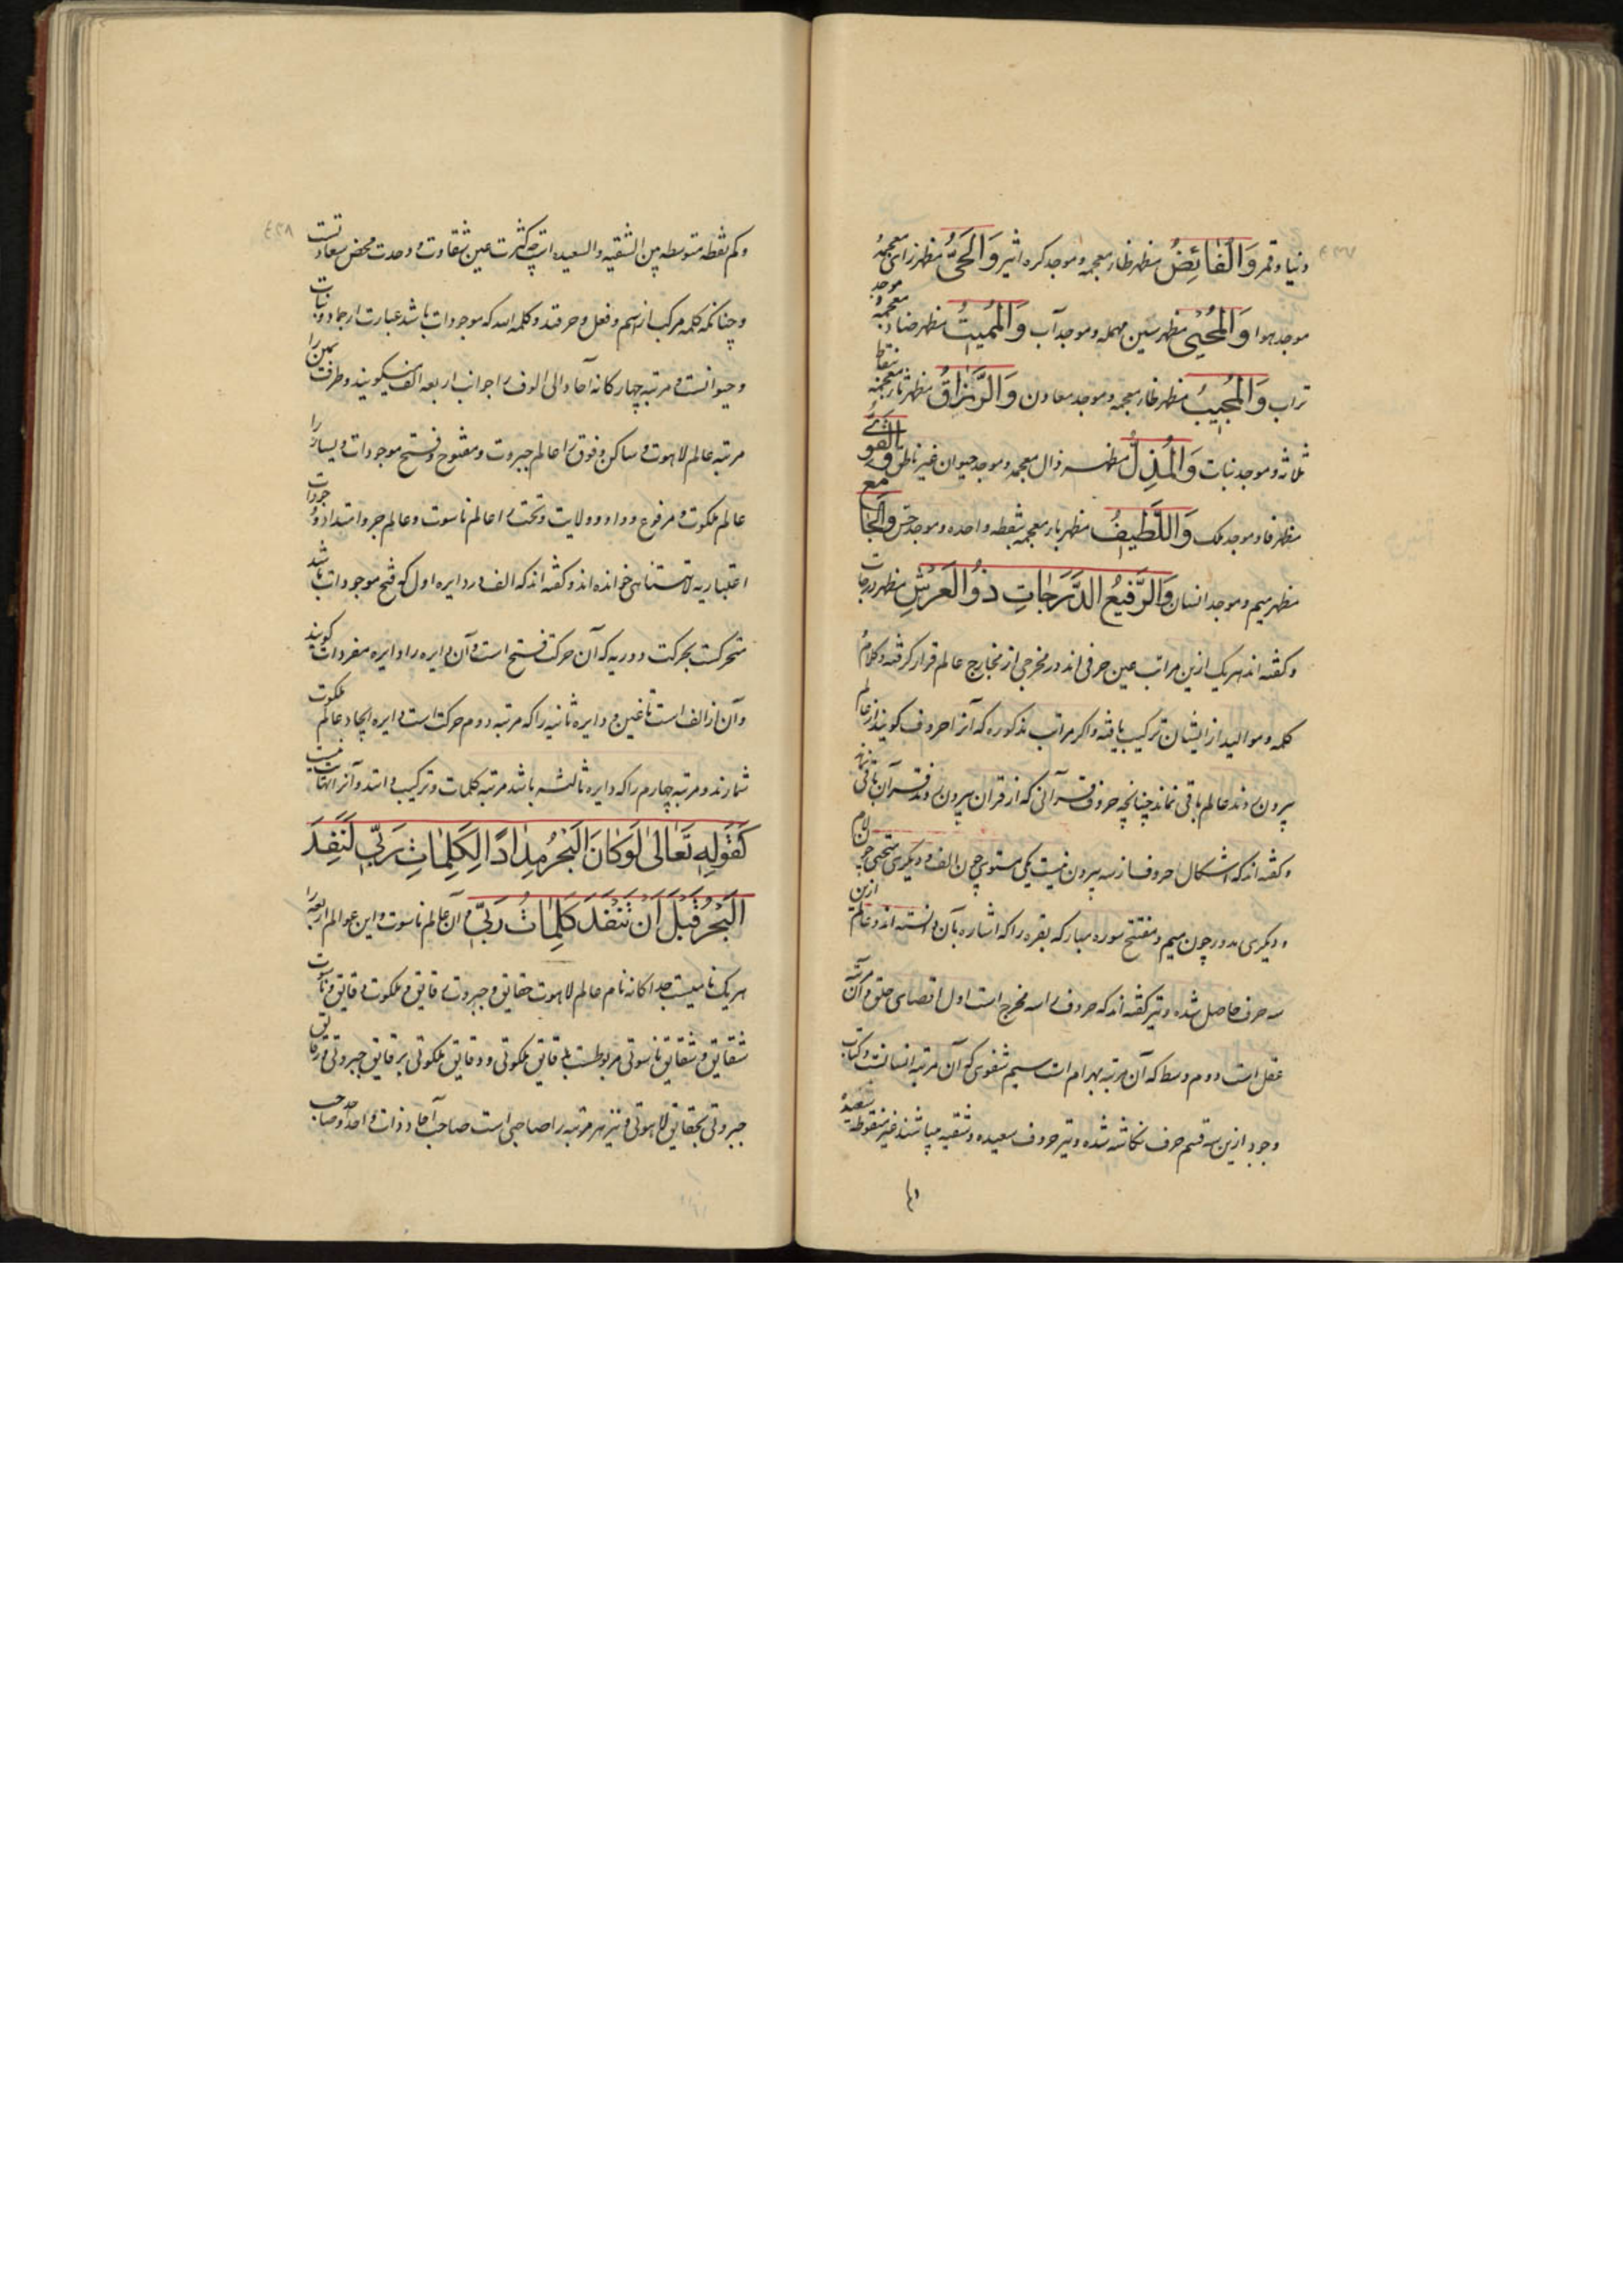 دنیا و قمر وَالْقَابِضُ مظهر ظاء معجمه و موجد کره اثیر وَالْحَیُّ مظهر زای معجمه
موجد هوا وَالْمُحْیِی مظهر سین مهمله و موجد آب وَالْمُمِیتُ مظهر ضاد معجمه و موجد
تراب وَالْمُجِیبُ مظهر ظاء معجمه و موجد معادن وَالرَّزَّاقُ مظهر ثاء معجمه بنقاط
ثلاثه و موجد نبات وَالْمُذِلُّ مظهر ذال معجمه و موجد حیوان غیر ناطق وَالْقَوِیُّ
مظهر فا و موجد ملک وَاللَّطِیفُ مظهر باء معجمه بنقطه واحده و موجد جن وَالْجَامِعُ
مظهر میم و موجد انسان وَالرَّفِیعُ الدَّرَجَاتِ ذُوالْعَرْشِ مظهر درجات
و گفته‌اند هر یک ازین مراتب عین حرفی‌اند در مخرجی از مخارج عالم قرار گرفته و کلام
کلمه و موالید از ایشان ترکیب یافته و اگر مراتب مذکوره که آنرا حروف گویند از عالم
بیرون روند عالم باقی نماند چنانچه حروف قرآنی که از قرآن بیرون روند قرآن باقی نماند
و گفته‌اند که اشکال حروف از سه بیرون نیست یکی مستوی چون الف و دیگری منحنی چون لام
و دیگری مدور چون میم و مفتتح سوره مبارکه بقره را که اشاره بآن دانسته‌اند و عالم ازین
سه حرف حاصل شده و نیز گفته‌اند که حروف را سه مخرج است اول اقصای حلق و آن مرتبه
عقل است دوم وسط که آن مرتبه بهرام است سیم شفوی که آن مرتبه انسانست و کتاب
وجود ازین سه قسم حرف نگاشته شده و نیز حروف سعیده و شقیه میباشند غیر منقوطه سعیده
و کم نقطه متوسطه بین الشقیه و السعیده است چه کثرت عین شقاوت و وحدت محض سعادتست
و چنانکه کلمه مرکب از اسم و فعل و حرفند و کلمه الله که موجودات باشد عبارت از جماد و نبات
و حیوانست و مرتبه چهارگانه آحاد الی الوف را جوانب اربعه الف میگویند و طرف یمن را
مرتبه عالم لاهوت و ساکن و فوق را عالم جبروت و مفتوح و فتح موجودات و یسار را
عالم ملکوت و مرفوع و واو و ولایت و تحت را عالم ناسوت و عالم جر و امتداد وجودات
اعتباریه لا متناهی خوانده‌اند و گفته‌اند که الف در دایره اول که فتح موجودات باشد
متحرکست بحرکت دوریه که آن حرکت فتح است و آن دایره را دایره مفردات گویند
و آن از الف است تا غین و دایره ثانیه را که مرتبه دوم حرکت است دایره ایجاد عالم ملکوت
شمارند و مرتبه چهارم را که دایره ثالثه باشد مرتبه کلمات و ترکیب دانند و آنرا نهایت نیست
کَقَوْلِهِ تَعَالَی لَوْ کَانَ الْبَحْرُ مِدَادًا لِکَلِمَاتِ رَبِّی لَنَفِدَ
الْبَحْرُ قَبْلَ أَنْ تَنْفَدَ کَلِمَاتُ رَبِّی و آن عالم ناسوت و این عوالم اربعه را
هر یک نامیست جداگانه نام عالم لاهوت حقایق و جبروت رقایق و ملکوت دقایق و ناسوت
شقایق و شقایق ناسوتی مربوطست بدقایق ملکوتی و دقایق ملکوتی برقایق جبروتی و رقایق
جبروتی بحقایق لاهوتی و نیز هر مرتبه را صاحبی است صاحب آحاد ذات واحد و صاحب